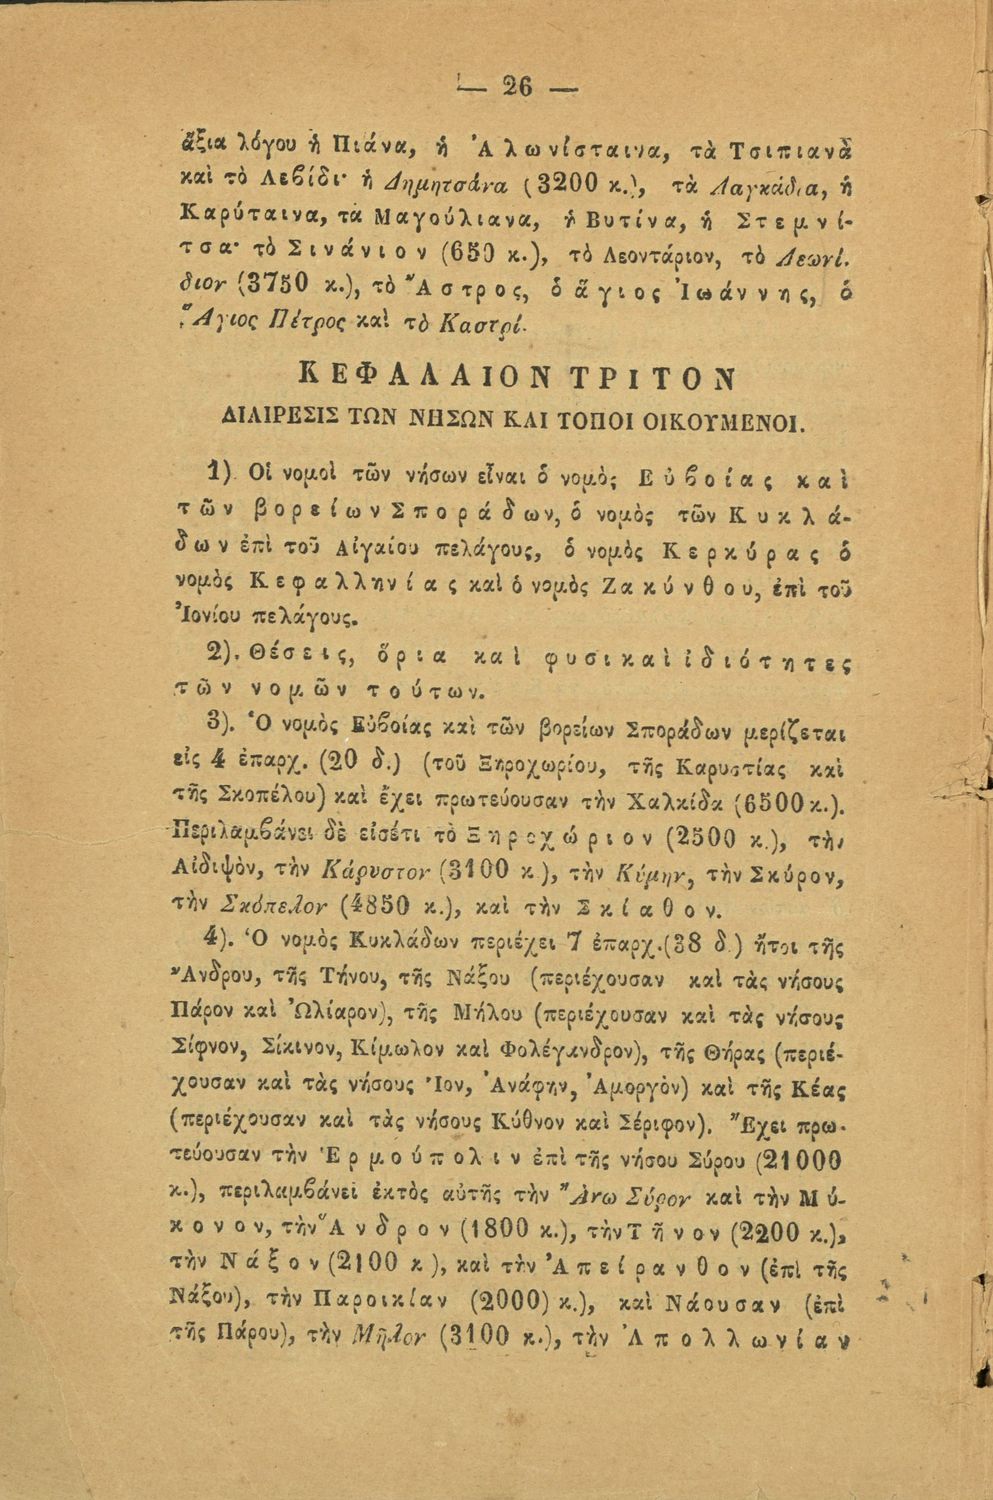 — 26 —
ἄξια λόγου ἡ Πιάνα, ἡ Ἀλωνίσταινα, τὰ Τσιπιανὰ
καὶ τὸ Λεβίδι· ἡ Δημητσάνα (3200 κ.), τὰ Λαγκάδια, ἡ
Καρύταινα, τὰ Μαγούλιανα, ἡ Βυτίνα, ἡ Στεμνί-
τσα· τὸ Σινάνιον (650 κ.), τὸ Λεοντάριον, τὸ Λεωνί.
διον (3750 κ.), τὸ Ἄστρος, ὁ ἅγιος Ἰωάννης, ὁ
Ἅγιος Πέτρος καὶ τὸ Καστρί.
ΚΕΦΑΛΑΙΟΝ ΤΡΙΤΟΝ
ΔΙΑΙΡΕΣΙΣ ΤΩΝ ΝΗΣΩΝ ΚΑΙ ΤΟΠΟΙ ΟΙΚΟΥΜΕΝΟΙ.
1). Οἱ νομοὶ τῶν νήσων εἶναι ὁ νομὸς Εὐβοίας καὶ
τῶν βορείων Σποράδων, ὁ νομὸς τῶν Κυκλά-
δων ἐπὶ τοῦ Αἰγαίου πελάγους, ὁ νομὸς Κερκύρας ὁ
νομὸς Κεφαλληνίας καὶ ὁ νομὸς Ζακύνθου, ἐπὶ τοῦ
Ἰονίου πελάγους.
2). Θέσεις, ὅρια καὶ φυσικαὶ ἰδιότητες
τῶν νομῶν τούτων.
3). Ὁ νομὸς Εὐβοίας καὶ τῶν βορείων Σποράδων μερίζεται
εἰς 4 ἐπαρχ. (20 δ.) (τοῦ Ξηροχωρίου, τῆς Καρυστίας καὶ
τῆς Σκοπέλου) καὶ ἔχει πρωτεύουσαν τὴν Χαλκίδα (6500 κ.).
Περιλαμβάνει δὲ εἰσέτι τὸ Ξηροχώριον (2500 κ.), τὴν
Αἰδιψὸν, τὴν Κάρυστον (3100 κ.), τὴν Κύμην, τὴν Σκύρον,
τὴν Σκόπελον (4850 κ.), καὶ τὴν Σκίαθον.
4). Ὁ νομὸς Κυκλάδων περιέχει 7 ἐπαρχ. (38 δ.) ἤτοι τῆς
Ἄνδρου, τῆς Τήνου, τῆς Νάξου (περιέχουσαν καὶ τὰς νήσους
Πάρον καὶ Ὠλίαρον), τῆς Μήλου (περιέχουσαν καὶ τὰς νήσους
Σίφνον, Σίκινον, Κίμωλον καὶ Φολέγανδρον), τῆς Θήρας (περιέ-
χουσαν καὶ τὰς νήσους Ἴον, Ἀνάφην, Ἀμοργὸν) καὶ τῆς Κέας
(περιέχουσαν καὶ τὰς νήσους Κύθνον καὶ Σέριφον). Ἔχει πρω-
τεύουσαν τὴν Ἑρμούπολιν ἐπὶ τῆς νήσου Σύρου (21000
κ.), περιλαμβάνει ἐκτὸς αὐτῆς τὴν Ἄνω Σύρον καὶ τὴν Μύ-
κονον, τὴν Ἄνδρον (1800 κ.), τὴν Τῆνον (2200 κ.),
τὴν Νάξον (2100 κ.), καὶ τὴν Ἀπείρανθον (ἐπὶ τῆς
Νάξου), τὴν Παροικίαν (2000) κ.), καὶ Νάουσαν (ἐπὶ
τῆς Πάρου), τὴν Μῆλον (3100 κ.), τὴν Ἀπολλωνίαν